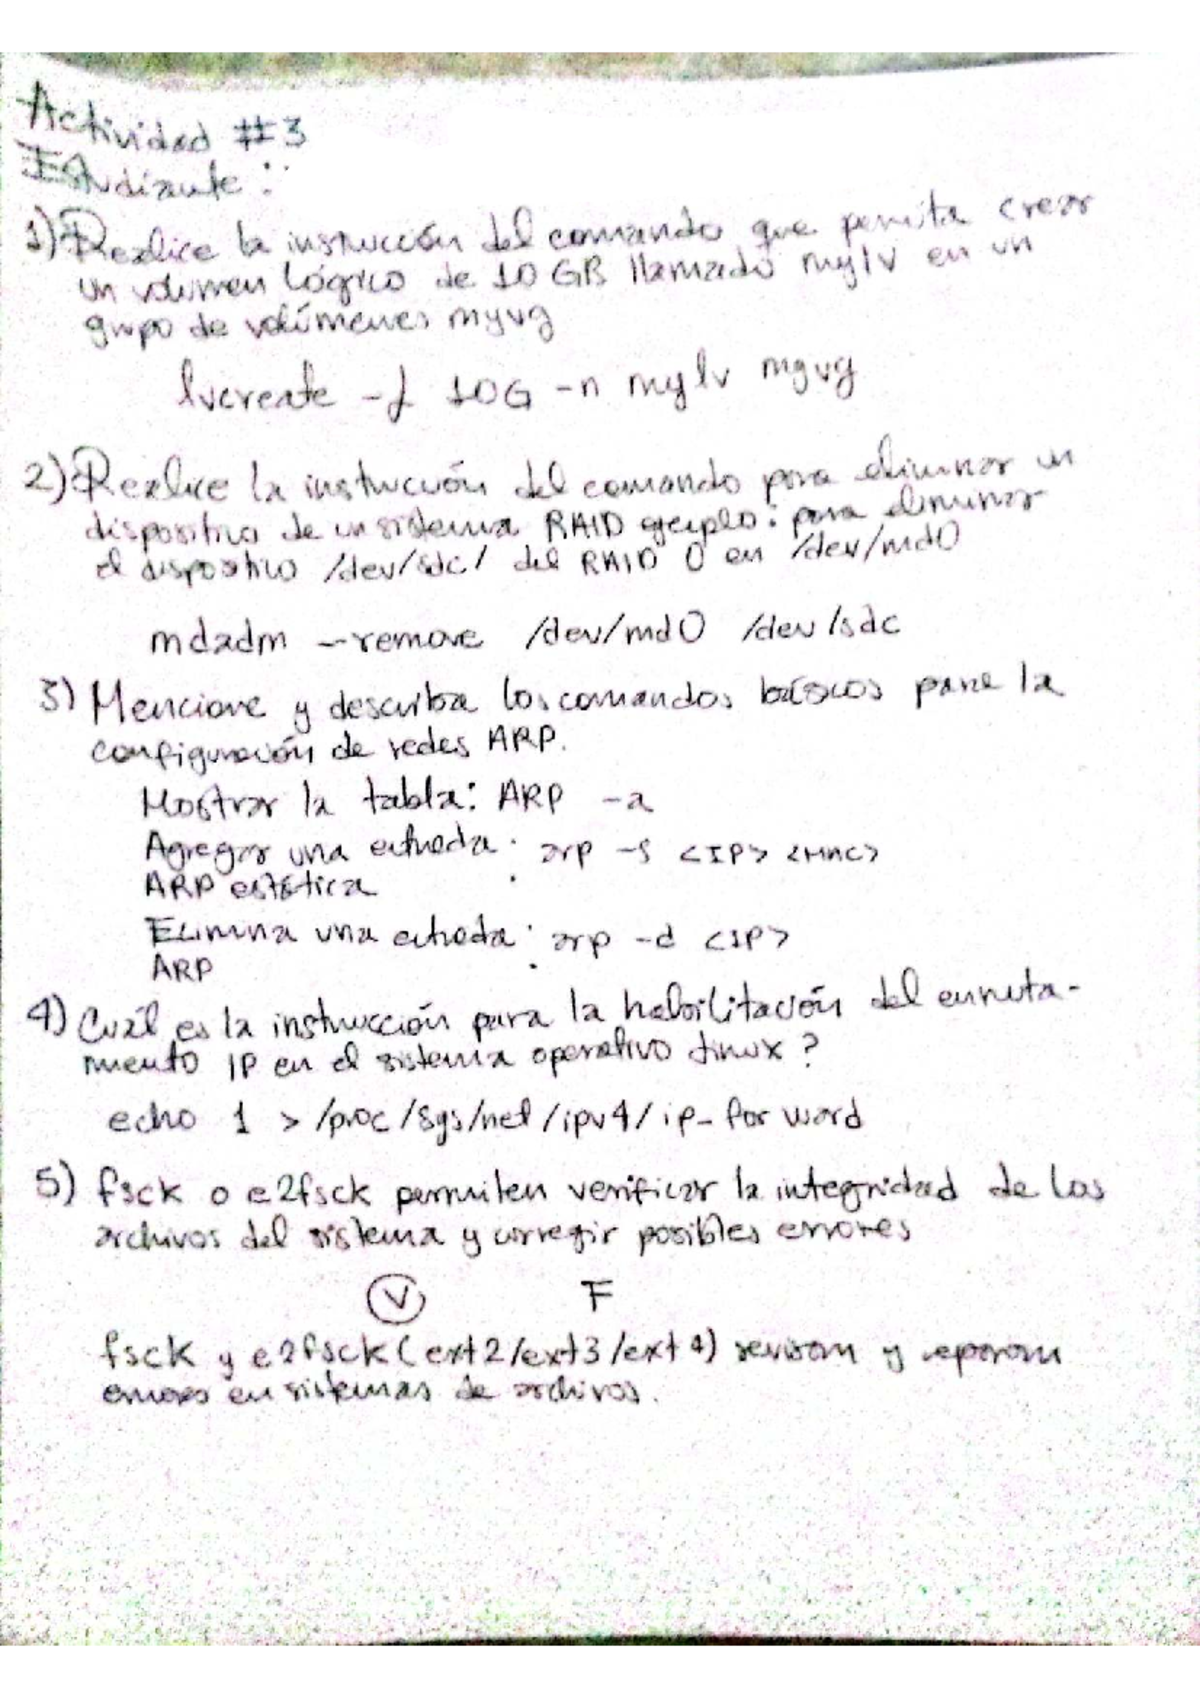 Actividad #3
Estudiante:
1) Realice la instrucción del comando que permita crear
un volumen lógico de 10 GB llamado mylv en un
grupo de volúmenes myvg
lvcreate -L 10G -n mylv myvg
2) Realice la instrucción del comando para eliminar un
dispositivo de un sistema RAID ejemplo: para eliminar
el dispositivo /dev/sdc/ del RAID 0 en /dev/md0
mdadm --remove /dev/md0 /dev/sdc
3) Mencione y describa los comandos básicos para la
configuración de redes ARP.
Mostrar la tabla: ARP -a
Agregar una entrada: arp -s <IP> <MAC>
ARP estática
Elimina una entrada: arp -d <IP>
ARP
4) Cuál es la instrucción para la habilitación del enruta-
miento IP en el sistema operativo Linux?
echo 1 > /proc/sys/net/ipv4/ip_forword
5) fsck o e2fsck permiten verificar la integridad de los
archivos del sistema y corregir posibles errores
V F
fsck y e2fsck (ext2/ext3/ext4) revisan y reparan
errores en sistemas de archivos.